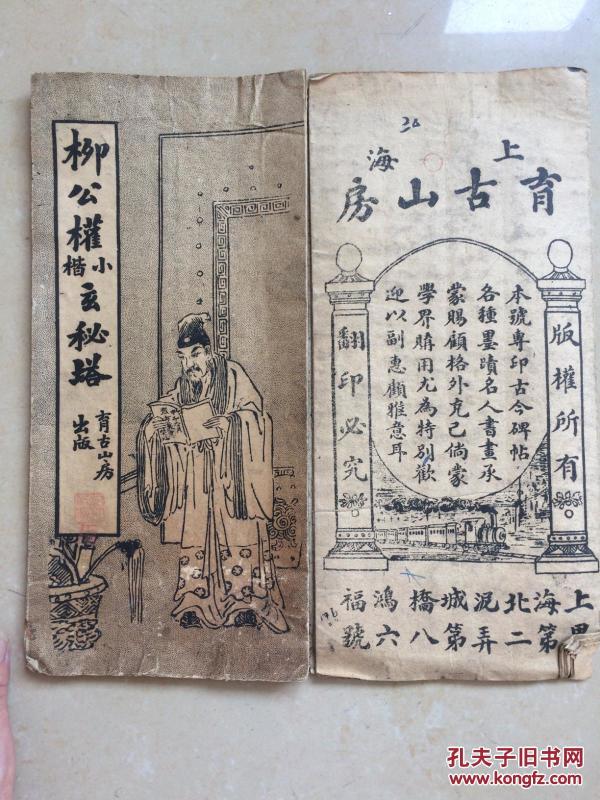 柳公權小楷玄秘塔
育古山房
出版
上海
育古山房
版權所有
本號專印古今碑帖
各種墨蹟名人書畫承
蒙賜顧格外克己倘蒙
學界購用尤為特別歡
迎以副惠顧雅意耳
翻印必究
上海北泥城橋鴻福
里第二弄第八六號
孔夫子旧书网
www.kongfz.com